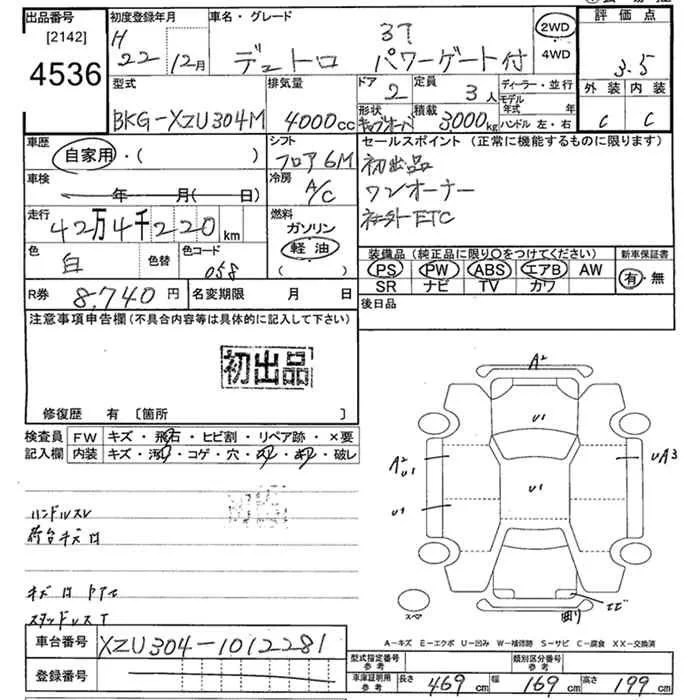 出品番号 [2142] 4536
初度登録年月 H 22年 12月
車名・グレード 3T デュトロ パワーゲート付
2WD 4WD
評価点 3.5
外装 C 内装 C
型式 BKG-XZU304M
排気量 4000cc
ドア 2 定員 3人
形状 キャブオーバ 積載 3000kg
ディーラー・並行
モデル年式 年
ハンドル 左・右
車歴 自家用・( )
シフト フロア6M
車検 年 月( 日)
冷房 A/C
走行 42万4千220km
燃料 ガソリン 軽油 ( )
色 白 色替 色コード 058
R券 8,740円 名変期限 月 日
セールスポイント (正常に機能するものに限ります)
初出品
ワンオーナー
社外ETC
装備品 (純正品に限り〇をつけてください)
PS PW ABS エアB AW
SR ナビ TV カワ
新車保証書 有・無
後日品
注意事項申告欄 (不具合内容等は具体的に記入して下さい)
初出品
修復歴 有 〔箇所 〕
検査員記入欄
FW キズ・飛石・ヒビ割・リペア跡・×要
内装 キズ・汚れ・コゲ・穴・スレ・キレ・破レ
ハンドルスレ
荷台キズ凹
A2
U1
A2 U1
U1
U1
UA3
曲り
スペア
A-キズ E-エクボ U-凹み W-補修跡 S-サビ C-腐食 XX-交換済
車台番号 XZU304-1012281
登録番号
型式指定番号 参考
類別区分番号 参考
車庫証明用 参考 長さ 469cm 幅 169cm 高さ 199cm